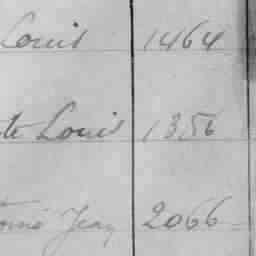 Louis 1464
te Louis 1356
Jean 2066